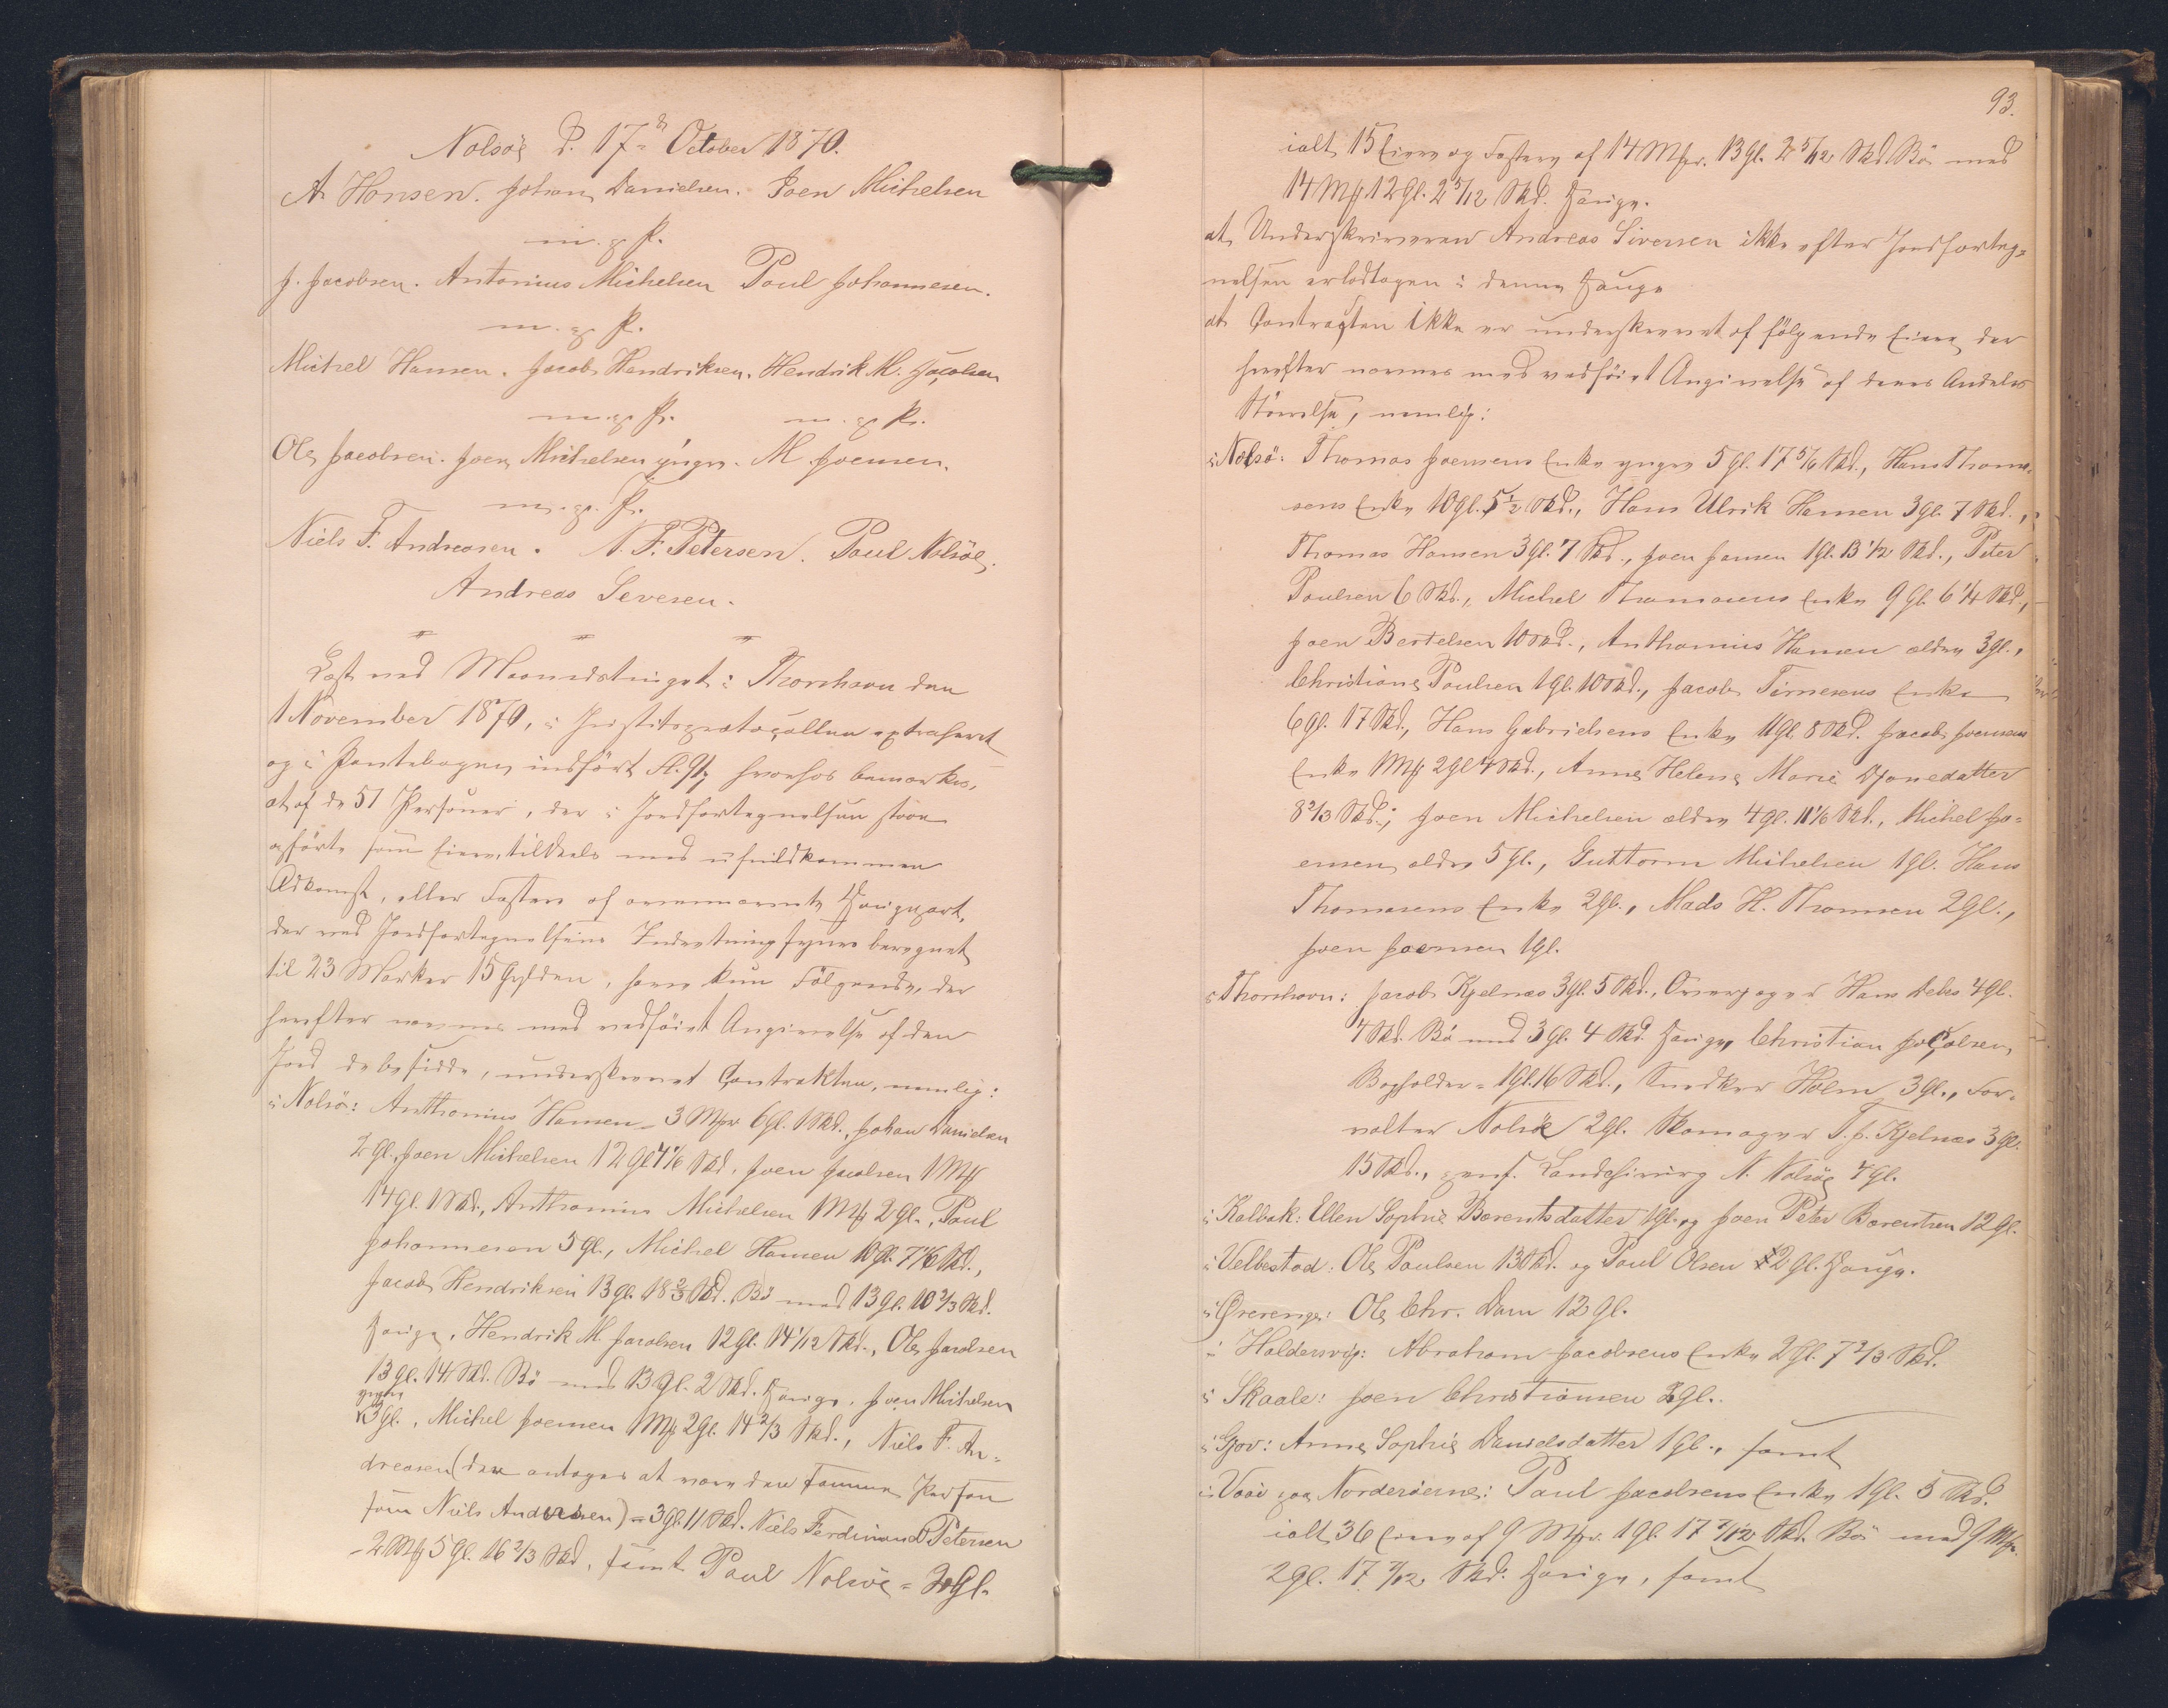 Nolsöe d. 17de October 1870.
A. Hansen. Johan Danielsen. Joen Michelsen
m. p. P.
J. Jacobsen. Antonius Michelsen Poul Johannesen.
m. p. P.
Michel Hansen. Jacob Hendriksen. Hendrik M. Jacobsen
m. p. P. m. p. P.
Ole Jacobsen. Joen Michelsen yngre. M. Joensen.
m. p. P.
Niels F. Andreasen. N. F. Petersen. Poul Nolsöe.
Andreas Sivesen.
Læst ved Maanedstinget i Thorshavn den
1 November 1870, i Justitsprotocollen extraheret
og i Pantebogen indfört hvorhos bemærkes,
at af de 51 Personer, der i Jordfortegnelsen staae
opförte som Eiere, tildeels med ufuldkommen
Adkomst, eller Fæstere af ovennævnte Haugepart,
der ved Jordfortegnelsens Indretning synes beregnet
til 23 Marker 15 Gylden, have kun Fölgende, der
herefter nævnes med vedföiet Angivelse af den
Jord de besidde, underskrevet Contrakten, nemlig:
i Nolsö: Anthonius Hansen - 3 Mkr 6 Gl. 1 Skd., Johan Danielsen
2 Gl., Joen Michelsen 12 Gl. 4 1/6 Skd. Joen Jacobsen 1 Mk
14 Gl. 1 Skd., Anthonius Michelsen 1 Mk 2 Gl., Poul
Johannesen 5 Gl., Michel Hansen 10 Gl. 7 1/6 Skd.,
Jacob Hendriksen 13 Gl. 18 2/3 Skd. Bö med 13 Gl. 10 2/3 Skd.
Hauge, Hendrik M. Jacobsen 12 Gl. 14 1/12 Skd., Ole Jacobsen
13 Gl. 14 Skd. Bö med 13 Gl. 2 Skd. Hauge, Joen Michelsen
yngre
3 Gl., Michel Joensen 1 Mk 2 Gl. 14 2/3 Skd., Niels F. An-
dreasen (der antages at være den samme Person
som Niels Andersen) = 3 Gl. 11 Skd. Niels Ferdinand Petersen
- 2 Mk 5 Gl. 16 2/3 Skd, samt Poul Nolsöe = Gl.
93.
ialt 15 Eiere og Fæstere af 14 Mkr. 13 Gl. 2 5/12 Skd. Bö med
14 Mk 12 Gl. 2 5/12 Skd. Hauge.
at Underskriveren Andreas Siversen ikke efter Jordforteg-
nelsen er lodtagen i denne Hauge
at Contracten ikke er underskrevet af fölgende Eiere, der
herefter nævnes med vedföiet Angivelse af deres Andeles
Störrelse, nemlig:
i Nolsö: Thomas Joensens Enke yngre 5 Gl. 17 5/6 Skd., Hans Thoma-
sens Enke 10 Gl. 5 1/2 Skd., Hans Ulrik Hansen 3 Gl. 7 Skd.,
Thomas Hansen 3 Gl. 7 Skd., Joen Hansen 1 Gl. 13 1/2 Skd., Peter
Poulsen 6 Skd., Michel Thomasens Enke 9 Gl. 6 1/4 Skd.,
Joen Bertelsen 10 Skd., Anthonius Hansen ældre 3 Gl.,
Christiane Poulsen 1 Gl. 10 Skd., Jacob Enke
6 Gl. 17 Skd., Hans Gabrielsens Enke 11 Gl. 8 Skd. Jacob Joensens
Enke 1 Mk 2 Gl. 4 Skd., Anne Helene Marie Djonedatter
8 2/3 Skd.; Joen Michelsen ældre 4 Gl. 11 1/6 Skd., Michel Jo-
ensen ældre 5 Gl., Guttorm Michelsen 1 Gl. Hans
Thomasens Enke 2 Gl., Mads H. Thomsen 2 Gl.,
Joen Joensen 1 Gl.
i Thorshavn: Jacob Kjelnæs 3 Gl. 5 Skd., Hans Debes 4 Gl.
4 Skd. Bö med 3 Gl. 4 Skd. Hauge, Christian Jacobsen,
Bogholder = 1 Gl. 16 Skd., Snedker Holm 3 Gl., For-
valter Nolsöe 2 Gl. Skomager T. J. Kjelnæs 3 Gl.
15 Skd., pens. Landchirurg N. Nolsöe 4 Gl.
i Kalbak: Ellen Sophie Barentsdatter 1 Gl. og Joen Peter Barentsen 12 Gl.
i Velbestad: Ole Poulsen 13 Skd. og Poul Olsen 2 Gl. Hauge.
i Ørerenge: Ole Chr. Dam 12 Gl.
i Haldersvig: Abraham Jacobsens Enke 2 Gl. 7 2/3 Skd.
i Skaale: Joen Christiansen 2 Gl.
i Gjov: Anne Sophie Danielsdatter 1 Gl., samt
i Vaai paa Norderöerne: Poul Jacobsens Enke 1 Gl. 5 Skd.
ialt 36 Eiere af 9 Mkr. 1 Gl. 17 7/12 Skd. Bö med 9 Mkr.
2 Gl. 17 7/12 Skd. Hauge, samt